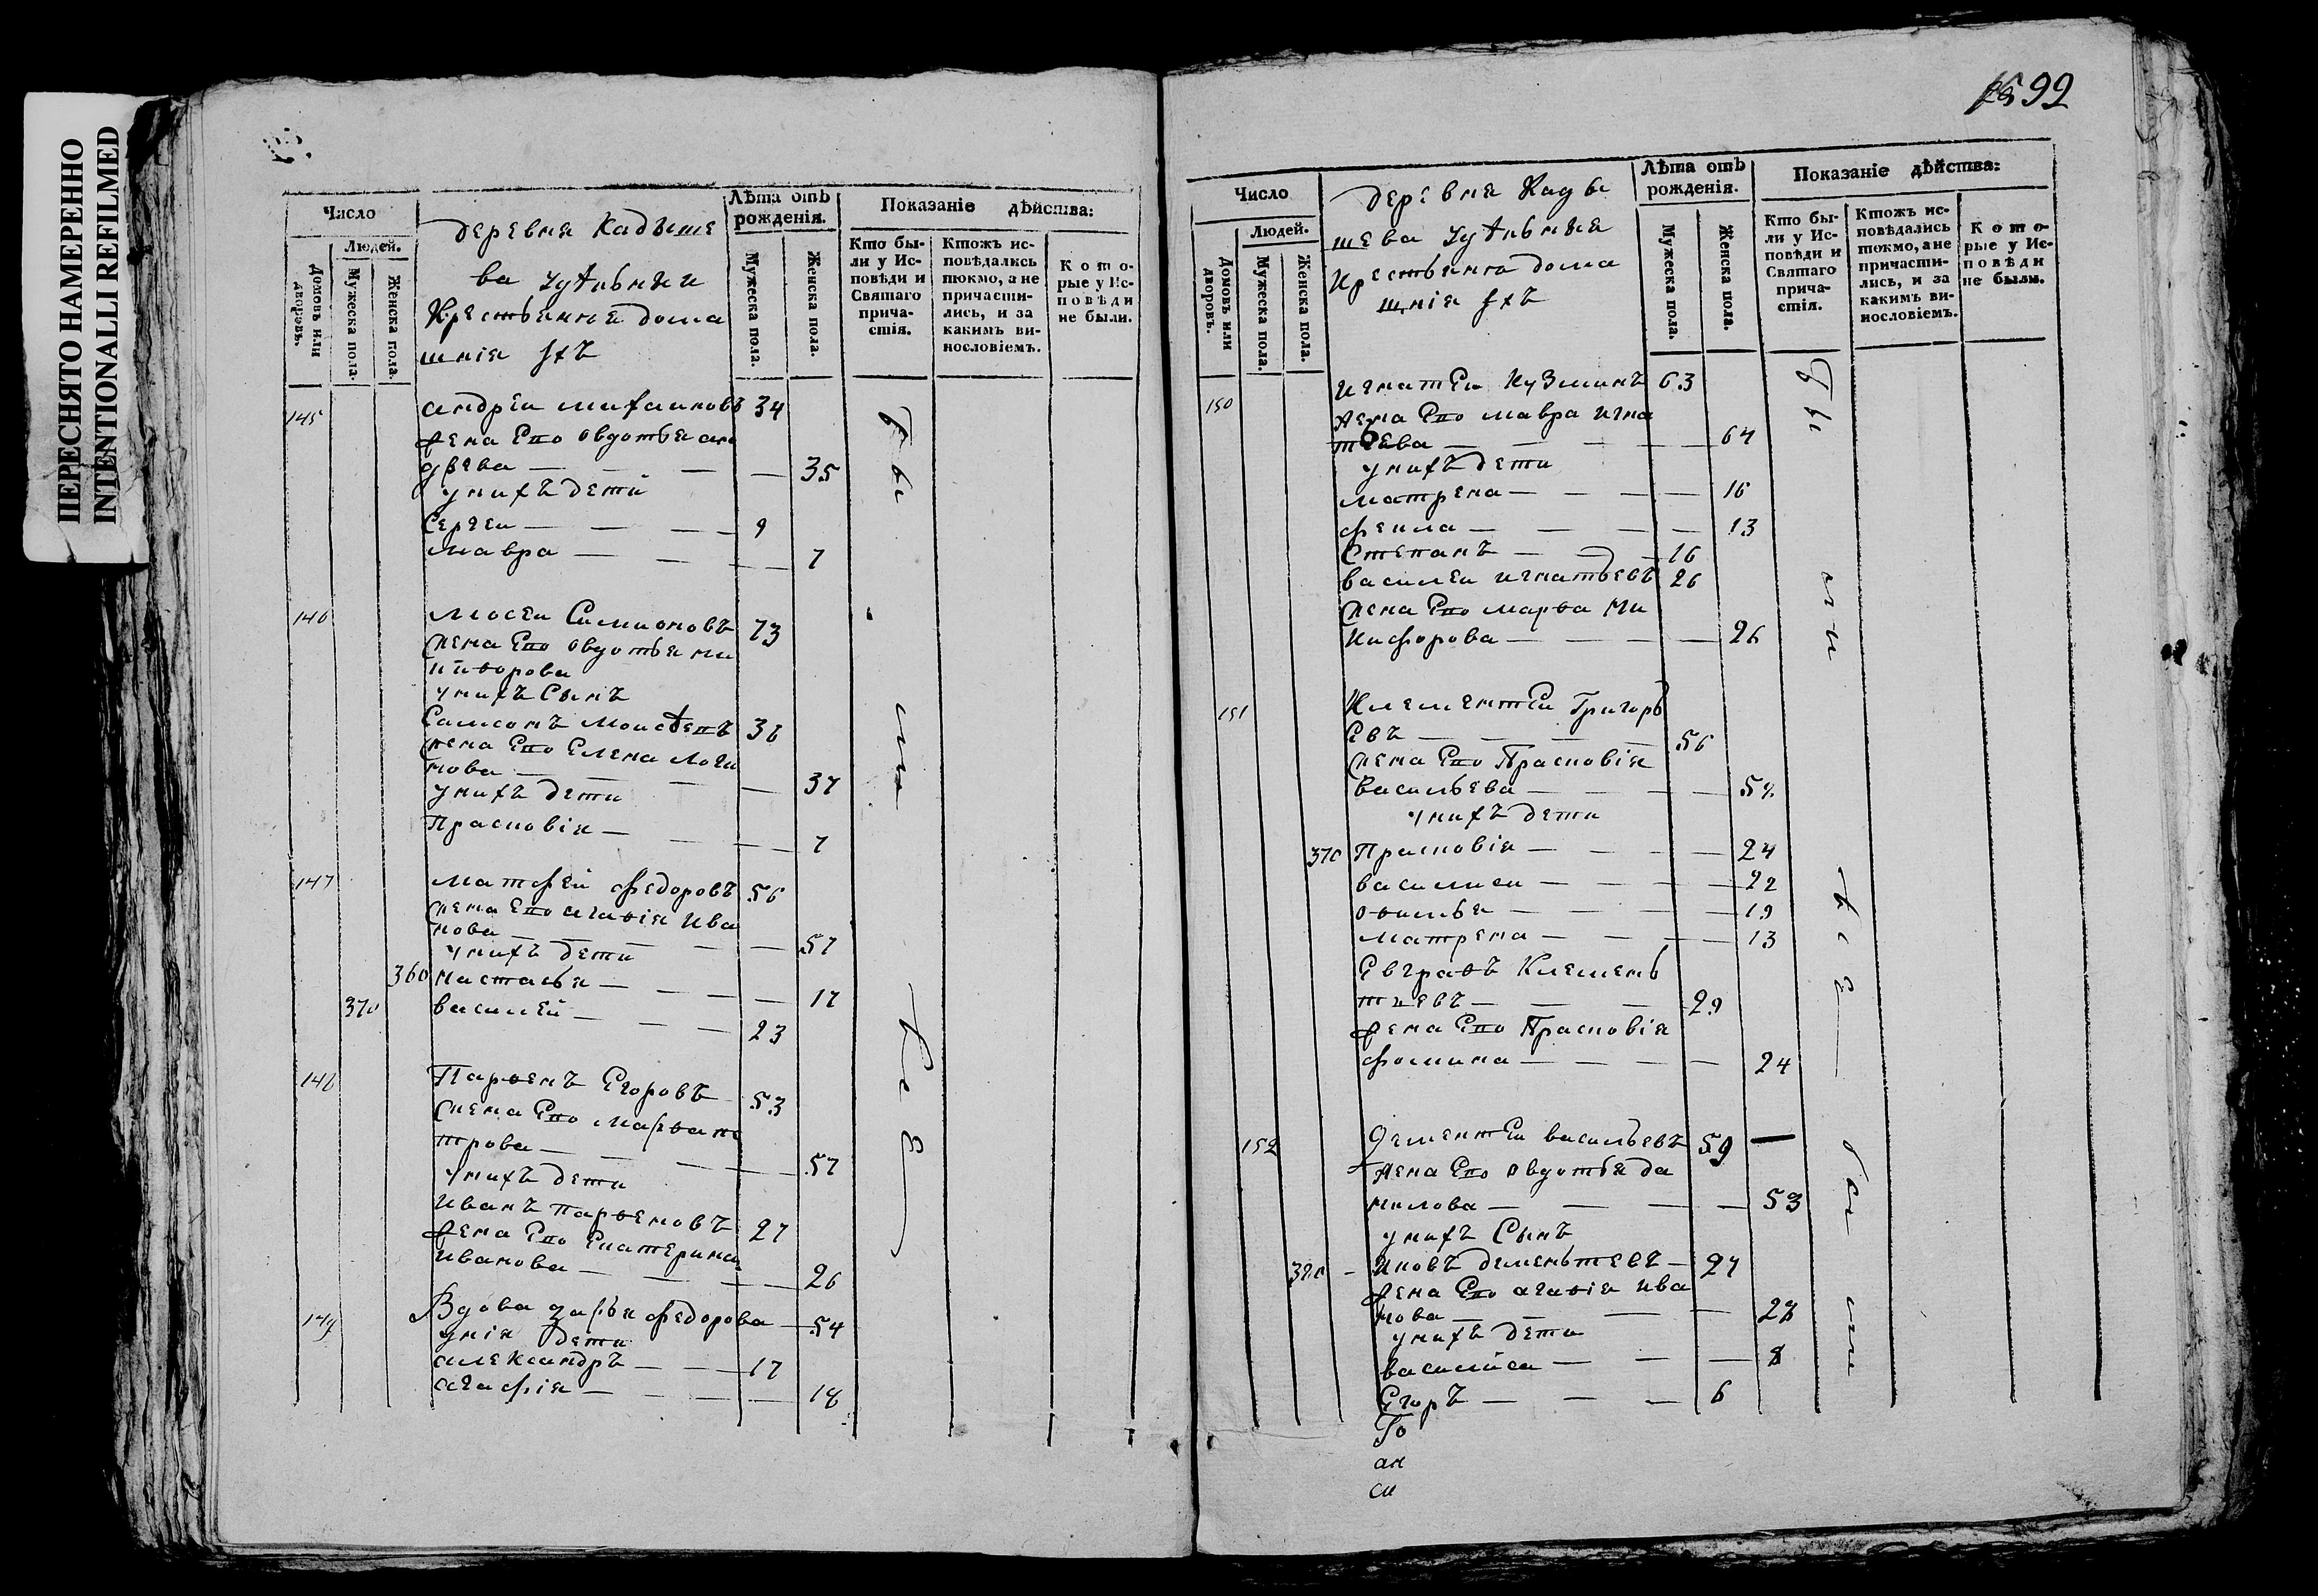 ПЕРЕСНЯТО НАМЕРЕННО
INTENTIONALLI REFILMED
Число
Людей.
Домовъ или дворовъ.
Мужеска пола.
Женска пола.
деревня Кадыше
ва
Крестьянѣ дома
шнія ихъ
Лѣта отъ рожденія.
Мужеска пола.
Женска пола.
Показаніе дѣйства:
Кто были у Исповѣди и Святаго причастія.
Ктожъ исповѣдались токмо, а не причастились, и за какимъ винословіемъ.
Которые у Исповѣди не были.
145 андреи михаиловъ 34
жена Его овдотья ан
дреева — — — 35
у нихъ дети
Сергеи — — — 9
мавра — — — 7
146 мосеи Симионовъ 73
жена Его овдотья ни
киѳорова
у нихъ Сынъ
Самсонъ Моисѣевъ 36
жена Его Елена Логи
нова — — — 37
у нихъ дети
Прасковія — — — 7
147 матфей федоровъ 56
жена Его агаѳія Ива
нова — — — 57
у нихъ дети
360 настасья — — — 17
370 василей — — — 23
148 Парѳенъ Егоровъ 53
жена Его Марѳа пе
трова — — — 57
у нихъ дети
Иванъ парѳеновъ 27
жена Его Екатерина
иванова — — — 26
149 Вдова дарья федорова — 54
у нія дети
александръ — — 17
агафія — — — 18
Бы
ли
Все
99
Число
Людей.
Домовъ или дворовъ.
Мужеска пола.
Женска пола.
деревня Кады
шева
Крестьяне дома
шнія ихъ
Лѣта отъ рожденія.
Мужеска пола.
Женска пола.
Показаніе дѣйства:
Кто были у Исповѣди и Святаго причастія.
Ктожъ исповѣдались токмо, а не причастились, и за какимъ винословіемъ.
Которые у Исповѣди не были.
150 игнатеи Кузминъ 63
жена Его мавра игна
тьева — — — 64
у нихъ дети
матрена — — — 16
фекла — — — 13
Степанъ — — 16
василеи игнатьевъ 26
жена Его марѳа Ни
кифорова — — — 26
151 Клементеи Григорь
Евъ — — — 56
жена Его Прасковія
васильева — — — 52
у нихъ дети
370 Прасковія — — — 24
василиси — — — 22
офимья — — — 19
матрена — — — 13
Евграѳъ Клемень
тиевъ — — — 29
жена Его Прасковія
фомина — — — 24
152 дементеи васильевъ 59 —
жена Его овдотья да
нилова — — — 53
у нихъ Сынъ
380 - Иковъ деменьтевъ — 27
жена Его агаѳія ива
нова — — — 28
у нихъ дети
василиса — — — 8
Егоръ — — — 6
Го
ан
си
Бы
ли
все
бы
ли